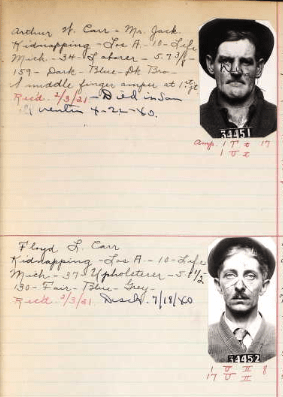 Arthur W. Carr - Mr. Jack.
Kidnapping - Los A - 10-Life
Mich - 34 - Laborer - 5-7 3/4
159 - Dark - Blue - Dk Bro -
middle finger amper at 1st jt
Rec'd 2/3/21 - Died in San
Quentin 4-22-40.
34451
Amp. 1 T 17
1 U
Floyd L. Carr
Kidnapping - Los A - 10-Life
Mich - 37 - Upholsterer - 5-8 1/2
130 - Fair - Blue - Grey -
Rec'd 2/3/21. Disch. 7/18/40
34452
1 U II 8
17 U II